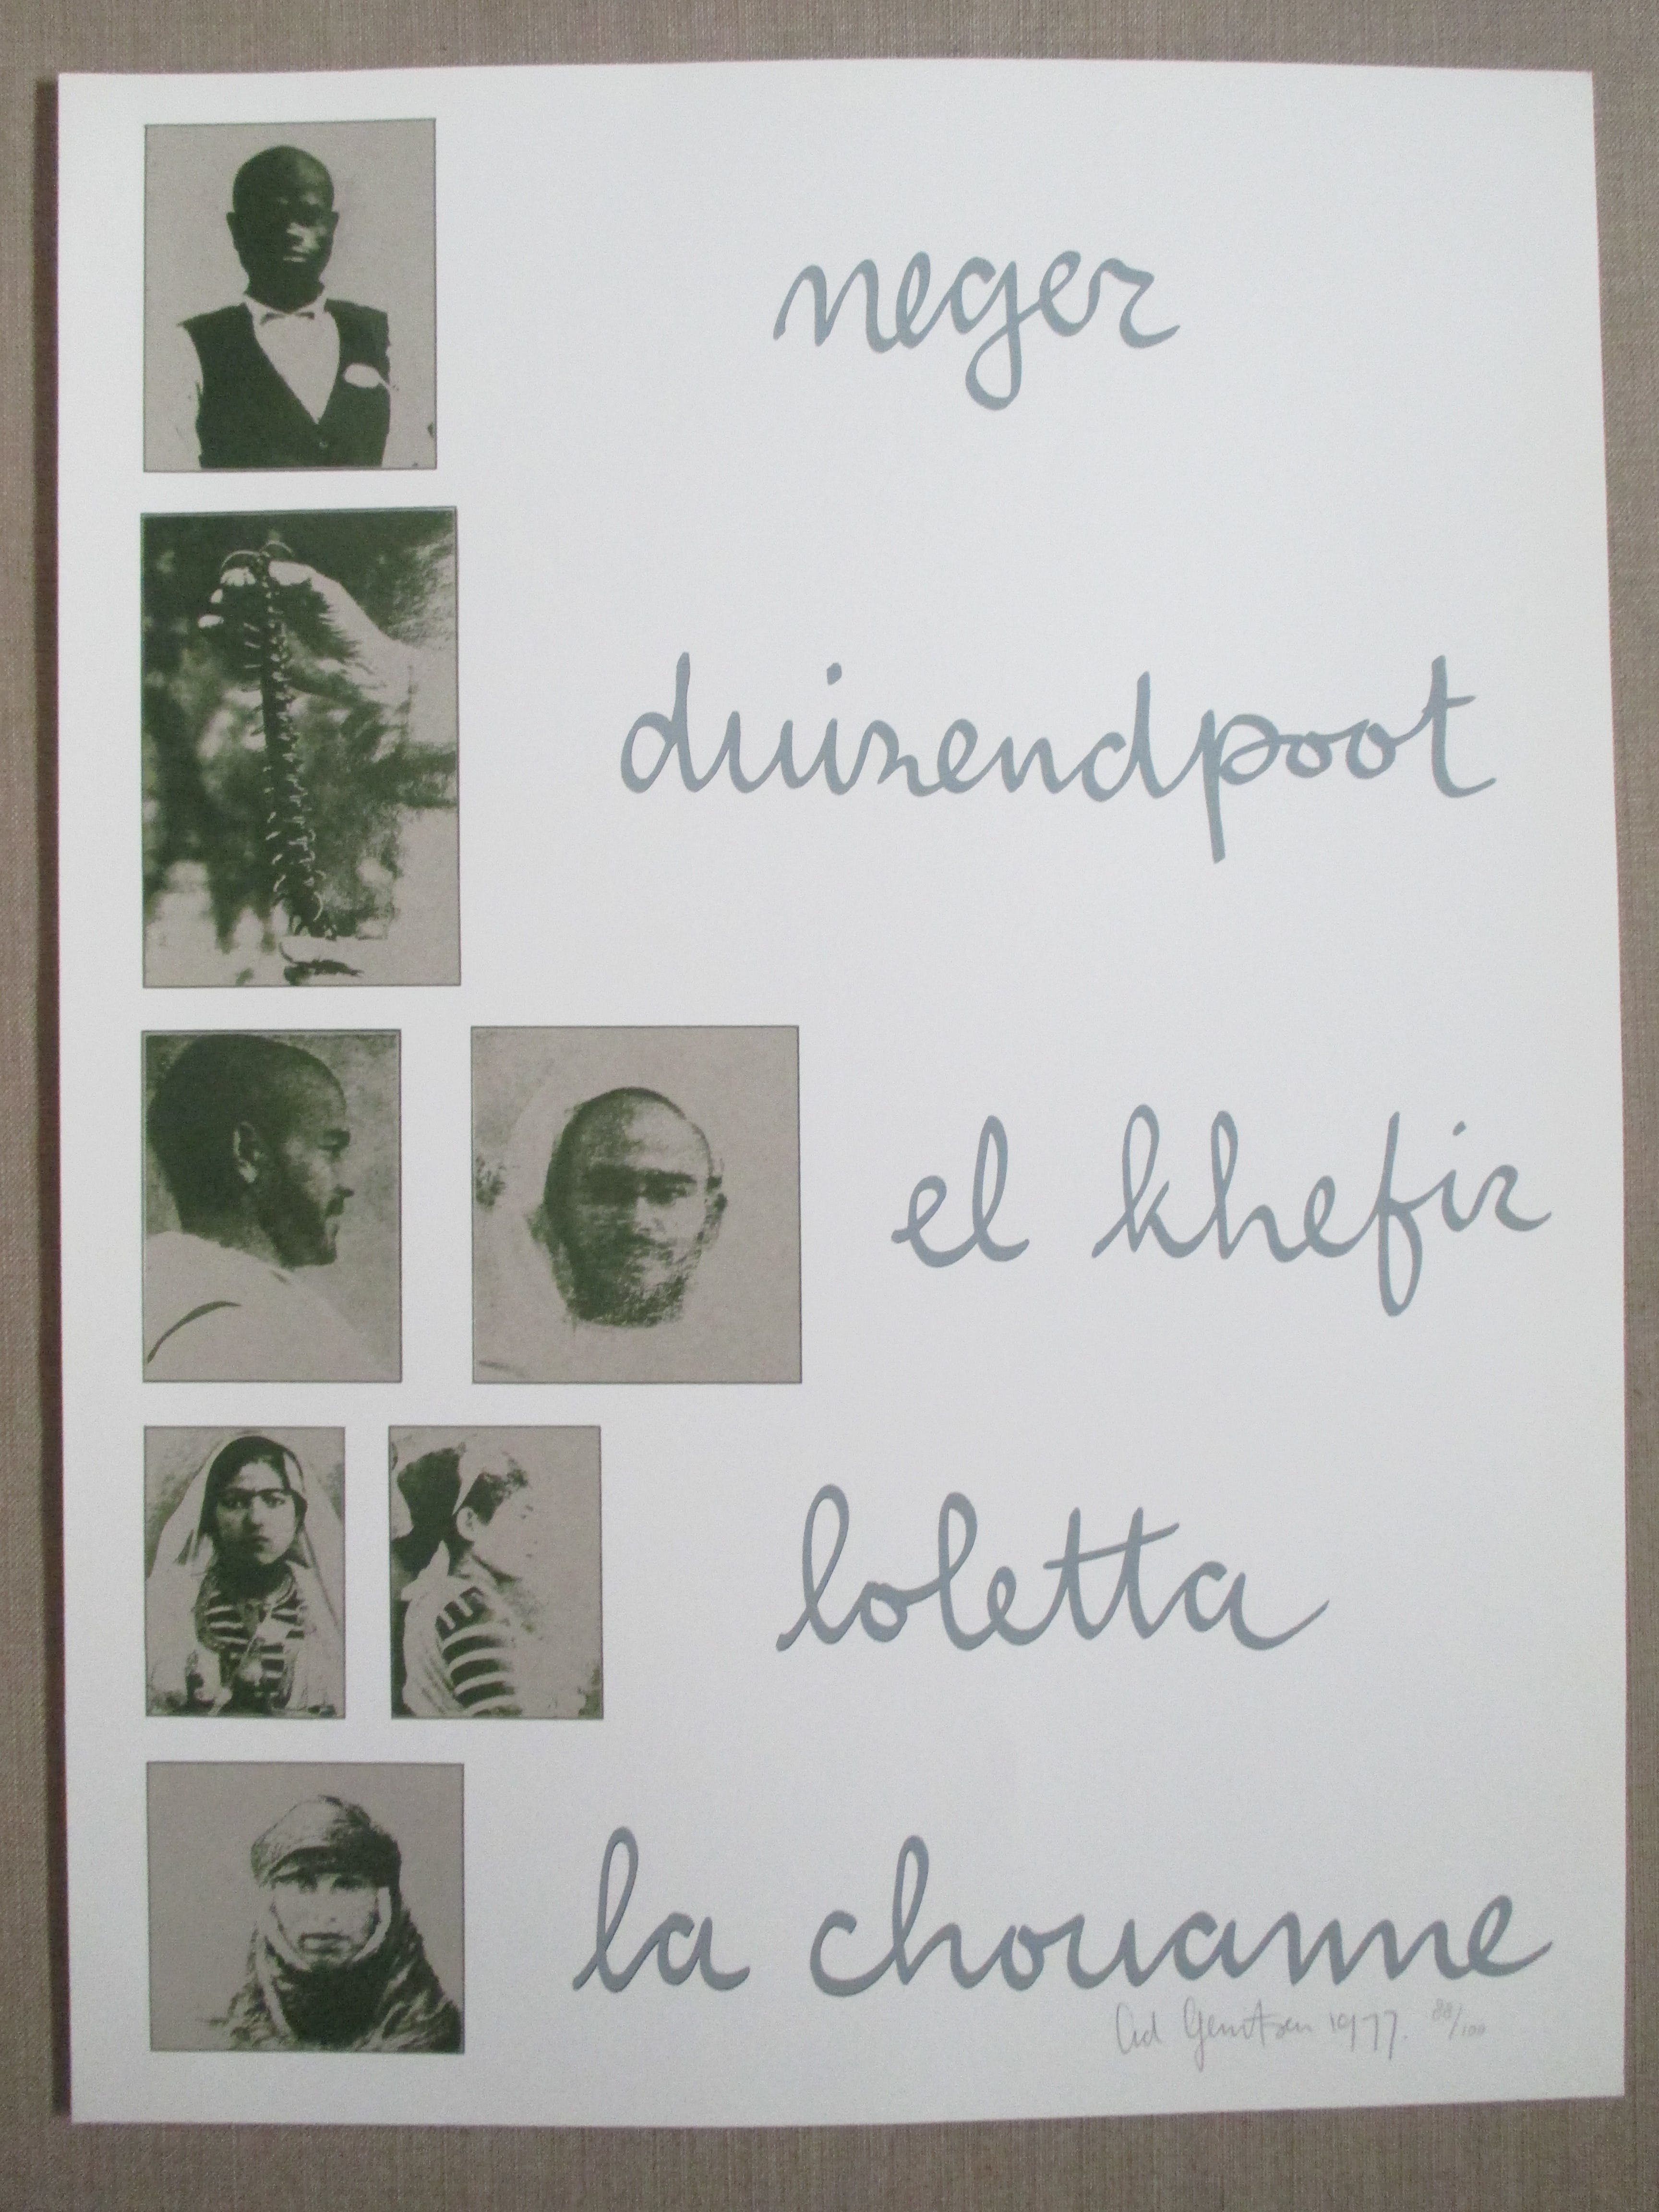 neger
duizendpoot
el khefir
loletta
la chouanne
Ad Gerritsen 1977. 88/100